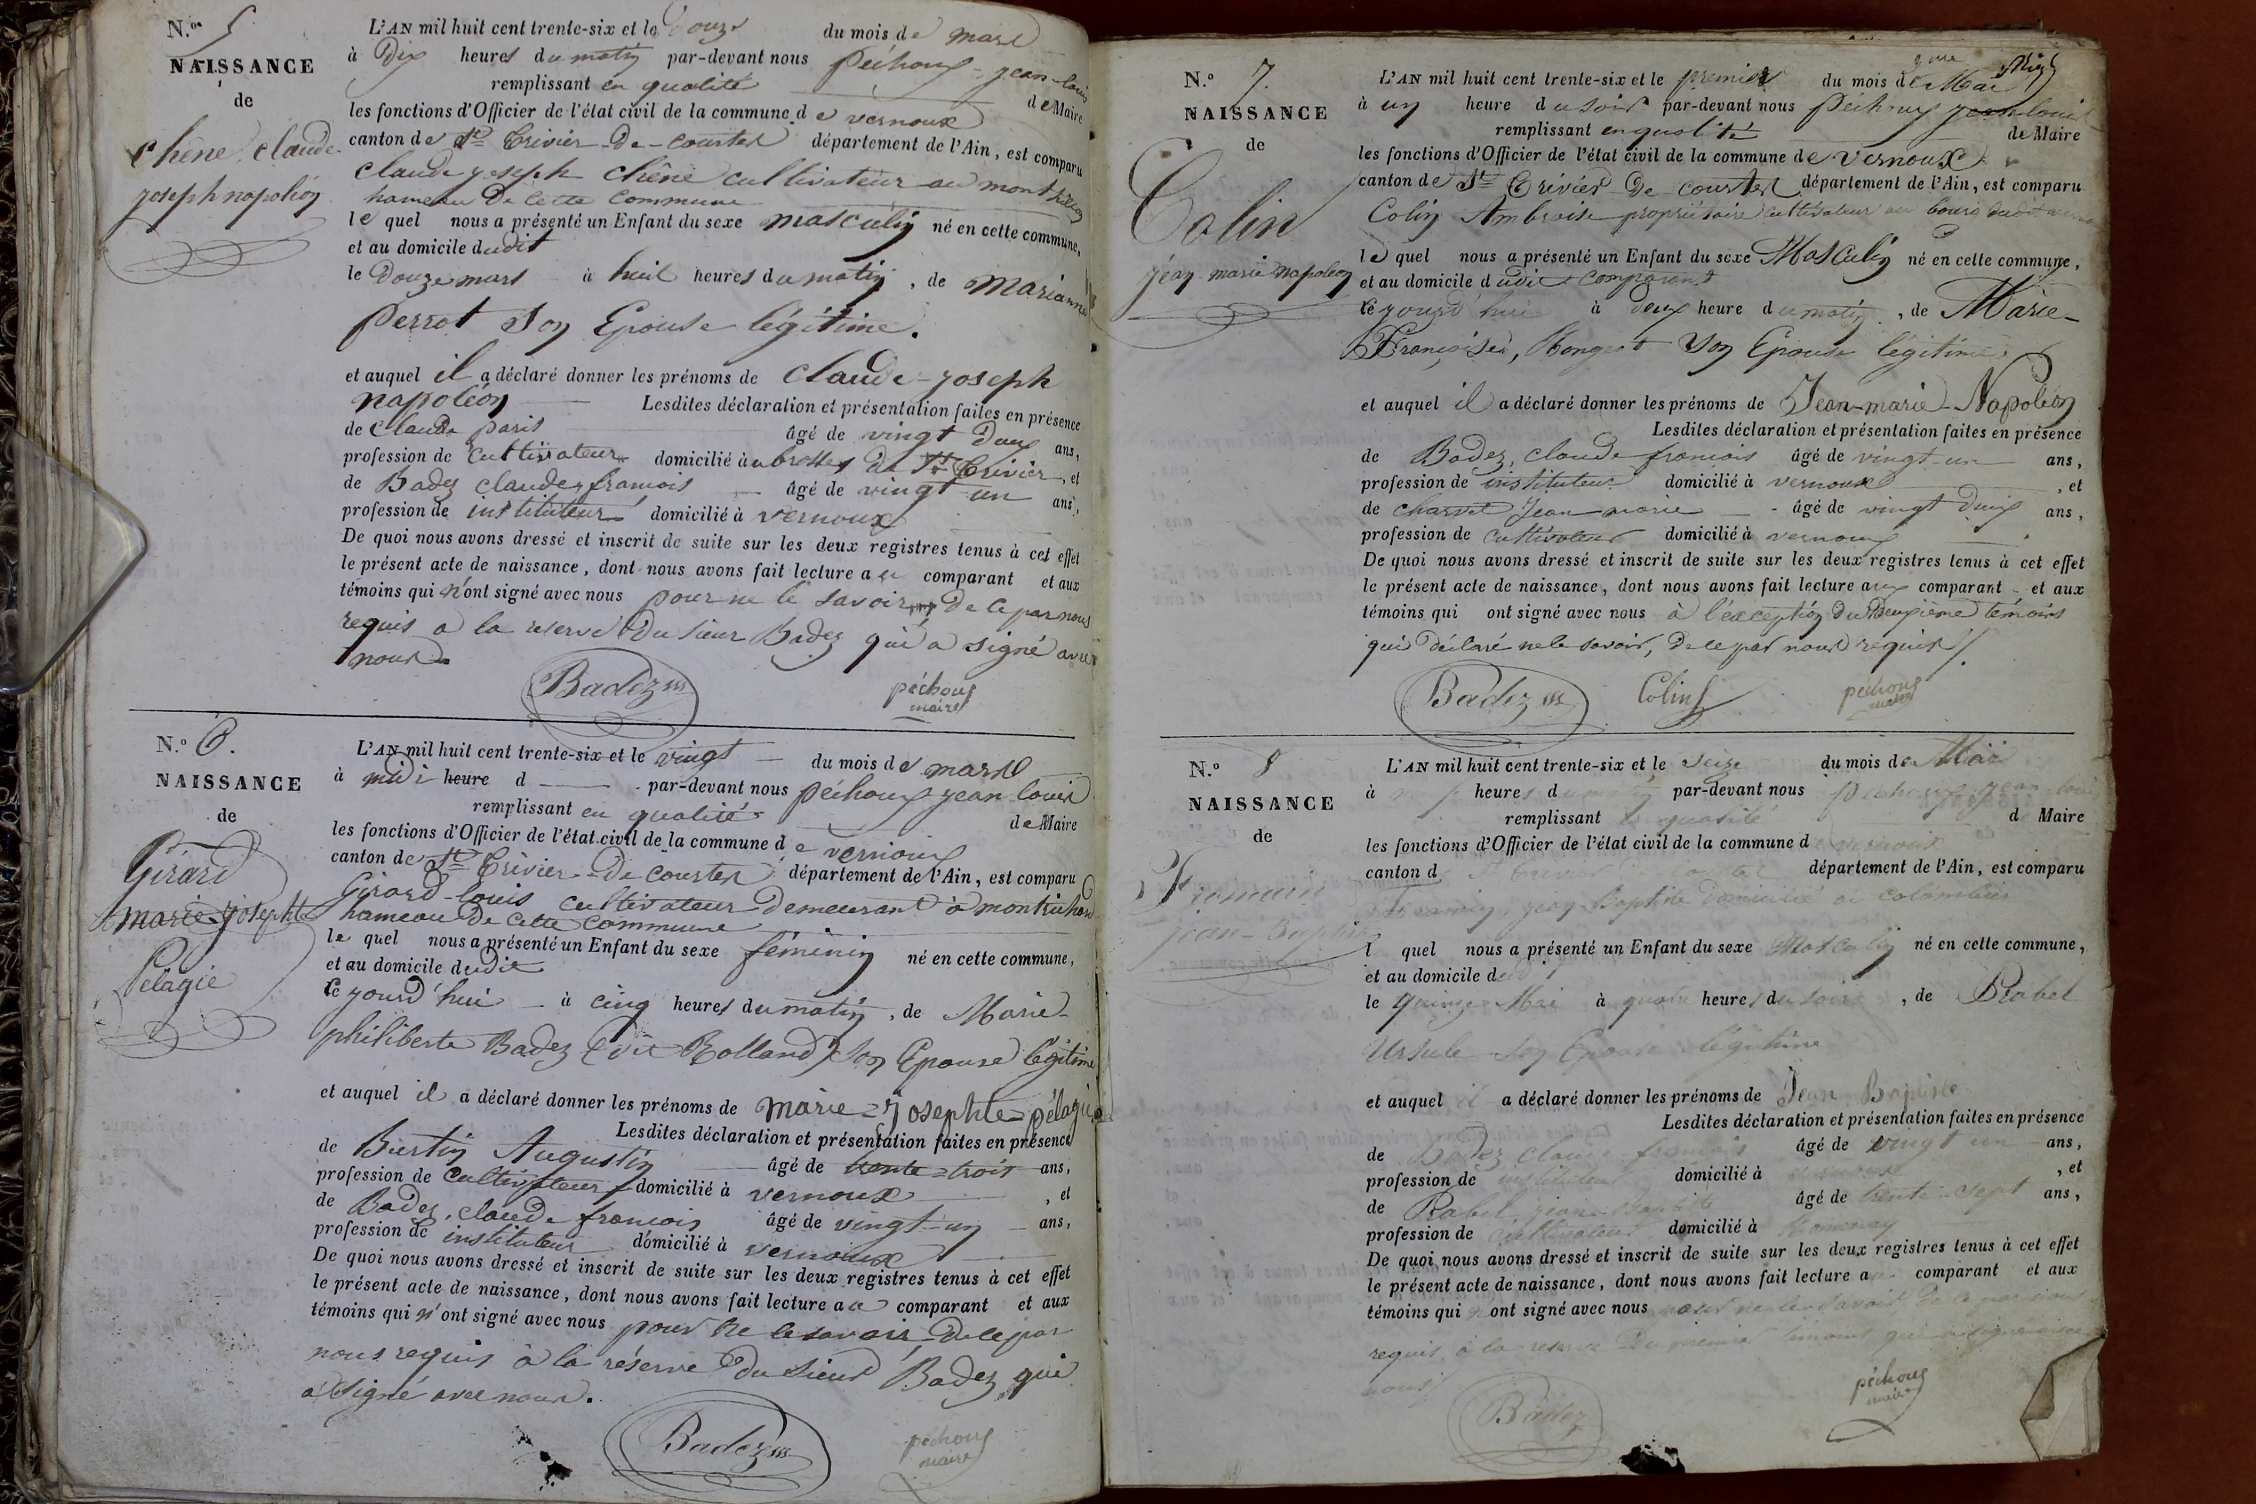 N.º 5
NAISSANCE
de
Chêne, claude
joseph napoléon
L'AN mil huit cent trente-six et le douze du mois de mars
à dix heures du matin par-devant nous péchoux jean-louis
remplissant en qualité de Maire
les fonctions d'Officier de l'état civil de la commune de vernoux
canton de St Trivier-De-courtes département de l'Ain, est comparu
claude joseph chêne cultivateur au
hameau De cette commune
le quel nous a présenté un Enfant du sexe masculin né en cette commune,
et au domicile dudit
le Douze mars à huit heures du matin, de Marianne
perrot Son Epouse légitime.
et auquel il a déclaré donner les prénoms de claude-joseph
napoléon Lesdites déclaration et présentation faites en présence
de claude paris âgé de vingt deux ans,
profession de cultivateur domicilié à de St Trivier, et
de Badez claude francois âgé de vingt un ans,
profession de instituteur domicilié à vernoux
De quoi nous avons dressé et inscrit de suite sur les deux registres tenus à cet effet
le présent acte de naissance, dont nous avons fait lecture au comparant et aux
témoins qui n'ont signé avec nous pour ne le savoir De ce par nous
requis a la reserve Du sieur Badez qui a signé avec
nous.
Badez
péchoux
maire
N.º 6.
NAISSANCE
de
Girard
marie-josephte
Pélagie
L'AN mil huit cent trente-six et le vingt du mois de mars
à midi heure d par-devant nous péchoux jean louis
remplissant en qualité de Maire
les fonctions d'Officier de l'état civil de la commune de vernoux
canton de St Trivier-De courtes département de l'Ain, est comparu
Girard louis cultivateur Demeurant à
hameau De cette commune
le quel nous a présenté un Enfant du sexe féminin né en cette commune,
et au domicile dudit
ce jourd'hui à cinq heures du matin, de Marie-
philiberte Badez (dit Rolland) son Epouse légitime
et auquel il a déclaré donner les prénoms de marie=Josephte=pélagie
Lesdites déclaration et présentation faites en présence
de Augustin âgé de trente=trois ans,
profession de cultivateur domicilié à vernoux, et
de Badez, claude francois âgé de vingt-un ans,
profession de instituteur domicilié à vernoux
De quoi nous avons dressé et inscrit de suite sur les deux registres tenus à cet effet
le présent acte de naissance, dont nous avons fait lecture au comparant et aux
témoins qui n'ont signé avec nous pour ne le savoir, De ce par
nous requis à la réserve Du sieur Badez qui
a signé avec nous.
Badez
péchoux
maire
N.º 7.
NAISSANCE
de
Colin
jean marie napoléon
L'AN mil huit cent trente-six et le premier du mois de Mai
à un heure du soir par-devant nous péchoux jean louis
remplissant en qualité de Maire
les fonctions d'Officier de l'état civil de la commune de vernoux
canton de St Trivier-De-courtes département de l'Ain, est comparu
Colin Ambroise propriétaire cultivateur au bourg
le quel nous a présenté un Enfant du sexe Masculin né en cette commune,
et au domicile dudit comparant
ce jourd'hui à deux heure du matin, de Marie-
Françoise, Son Epouse légitime
et auquel il a déclaré donner les prénoms de Jean-marie-Napoléon
Lesdites déclaration et présentation faites en présence
de Badez, claude francois âgé de vingt-un ans,
profession de instituteur domicilié à vernoux, et
de charvet Jean marie âgé de vingt Deux ans,
profession de cultivateur domicilié à vernoux
De quoi nous avons dressé et inscrit de suite sur les deux registres tenus à cet effet
le présent acte de naissance, dont nous avons fait lecture aux comparant et aux
témoins qui ont signé avec nous à l'exception du Deuxième témoins
qui déclaré ne le savoir, De ce par nous requis.
Badez
Colin
péchoux
maire
N.º 8
NAISSANCE
de
jean-Baptiste
L'AN mil huit cent trente-six et le seize du mois de Mai
à heures du matin par-devant nous péchoux jean louis
remplissant en qualité d Maire
les fonctions d'Officier de l'état civil de la commune de vernoux
canton d département de l'Ain, est comparu
jean Baptiste Domicilié a colombier
l quel nous a présenté un Enfant du sexe Masculin né en cette commune,
et au domicile dudit
le quinze Mai à quatre heures du soir, de Rabel
Ursule Son Epouse légitime
et auquel il a déclaré donner les prénoms de Jean Baptiste
Lesdites déclaration et présentation faites en présence
de Badez claude francois âgé de vingt un ans,
profession de instituteur domicilié à vernoux, et
de Rabel jean-Baptiste âgé de trente-sept ans,
profession de cultivateur domicilié à Romenay
De quoi nous avons dressé et inscrit de suite sur les deux registres tenus à cet effet
le présent acte de naissance, dont nous avons fait lecture a comparant et aux
témoins qui n'ont signé avec nous pour ne le savoir De ce par nous
requis à la reserve Du premier témoins qui a signé avec
nous
Badez
péchoux
maire